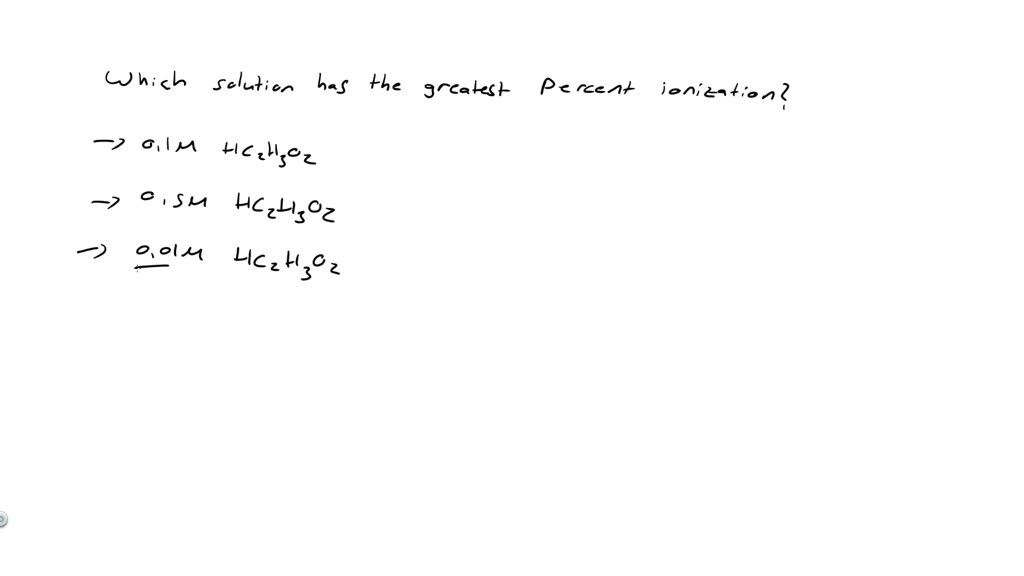 Which solution has the greatest Percent ionization?
→ 0.1M HC₂H₃O₂
→ 0.5M HC₂H₃O₂
→ 0.01M HC₂H₃O₂